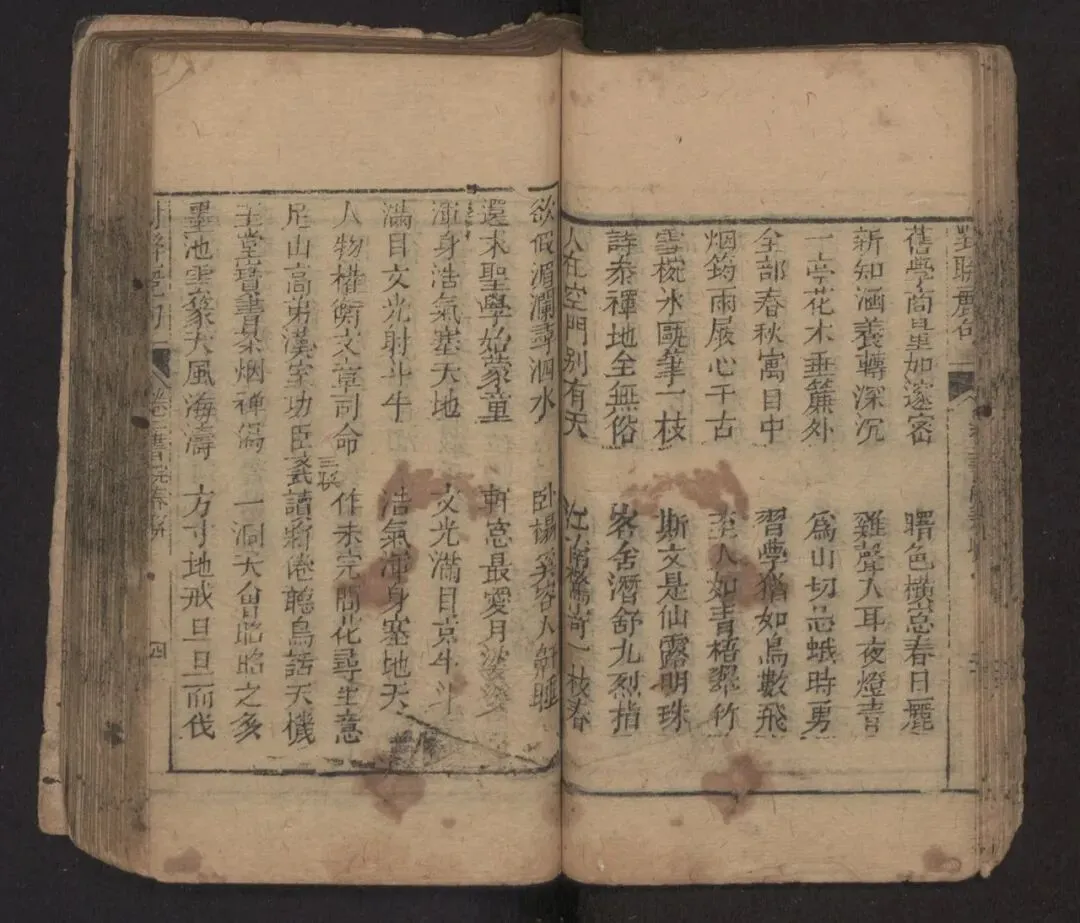 對聯麗句
舊學商量加邃密 曙色橫窓春日麗
新知涵養轉深沉 雞聲入耳夜燈青
一亭花木垂簾外 爲山切忌蛾時勇
全部春秋寓目中 習學猶如鳥數飛
烟筠雨展心千古 至人如青梧翠竹
雪椀冰甌筆一枝 斯文是仙露明珠
詩泰禪地全無俗 客舍潛舒九烈指
人在空門别有天 江南 寄一枝春
欲假湄瀾尋泗水 卧榻 容人鼾睡
還未聖學始蒙童 軒窓最愛月婆娑
渾身浩氣塞天地 文光滿目 牛斗
滿目文光射斗牛 浩氣渾身塞地天
人物權衡文章司命 作未完問花尋生意
尼山高弟漢室功臣 讀新卷聽鳥話天機
玉堂寶書茶烟禪 一洞天會昭昭之多
墨池雪 大風海濤 方寸地戒旦旦而伐
書院春聯 四